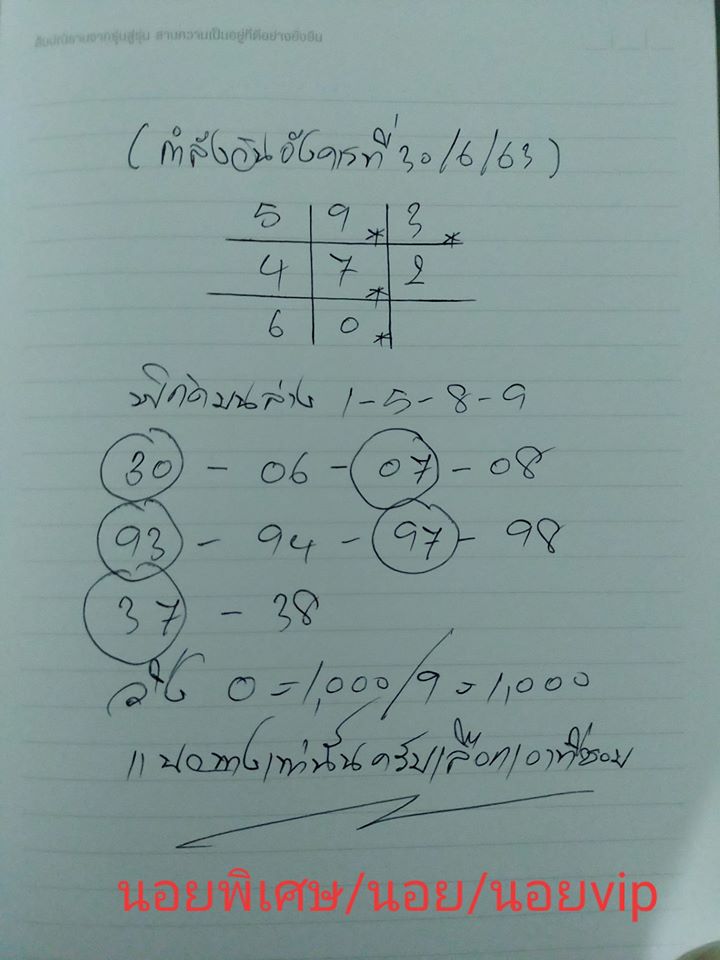 สัมปทานจากรุ่นสู่รุ่น สานความเป็นอยู่ที่ดีอย่างยั่งยืน
(กำลังวันอังคารที่ 30/6/63)
5 9* 3*
4 7* 2
6 0*
บนล่าง 1-5-8-9
30 - 06 - 07 - 08
93 - 94 - 97 - 98
37 - 38
วิ่ง 0=1,000/9=1,000
แนวทางเท่านั้นครับเลือกเอาที่ชอบ
นอยพิเศษ/นอย/นอยvip